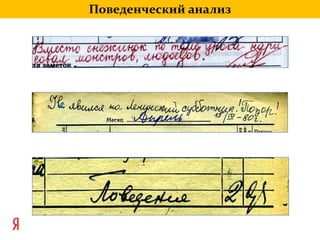 Поведенческий анализ
Вместо снежинок по труду нари-
совал монстров, людоедов.
ля заметок
Не явился на Ленинский субботник! Позор!
Месяц Апрель
Поведения 2
Я